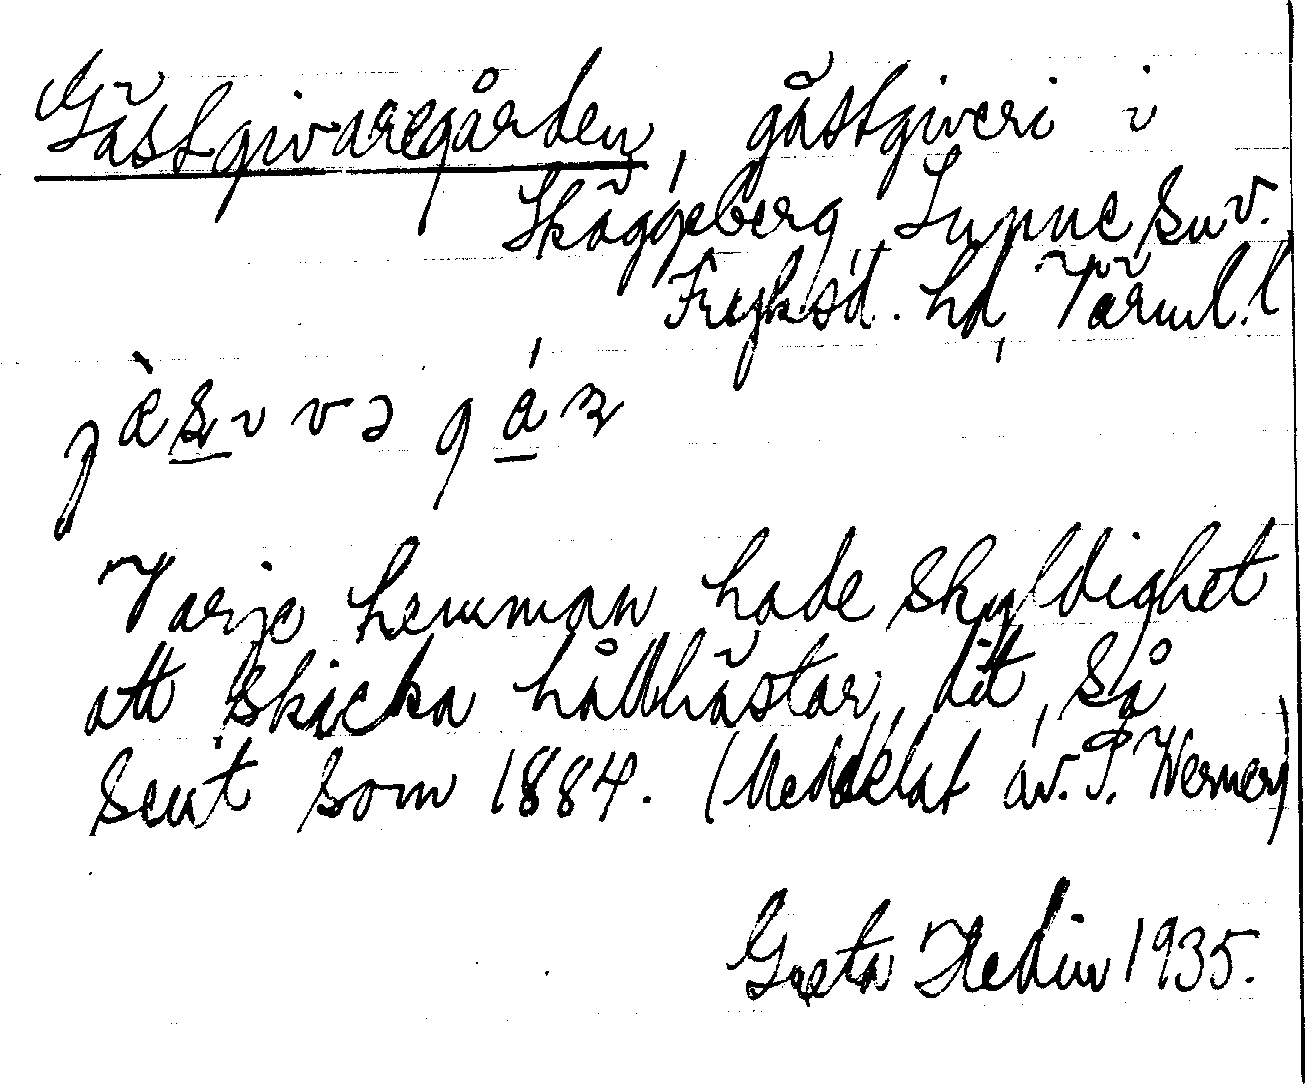 Gästgivaregården, gästgiveri i
Skäggeberg, Sunne snv.
Fryksd. hd, Värml. l
Varje hemman hade skyldighet
att skicka hållhästar dit, så
sent som 1884. (Meddelat av. P. Werner)
Greta Hedin 1935.